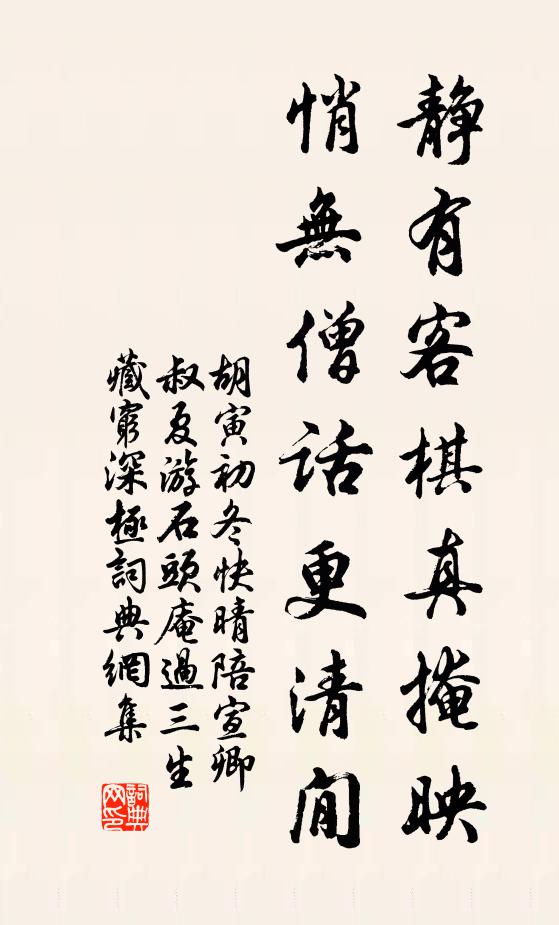 靜有客棋真掩映
悄無僧話更清閒
胡寅初冬快晴陪宣卿
叔夏游石頭庵過三生
藏窮深極詞典網集
詞典
网印